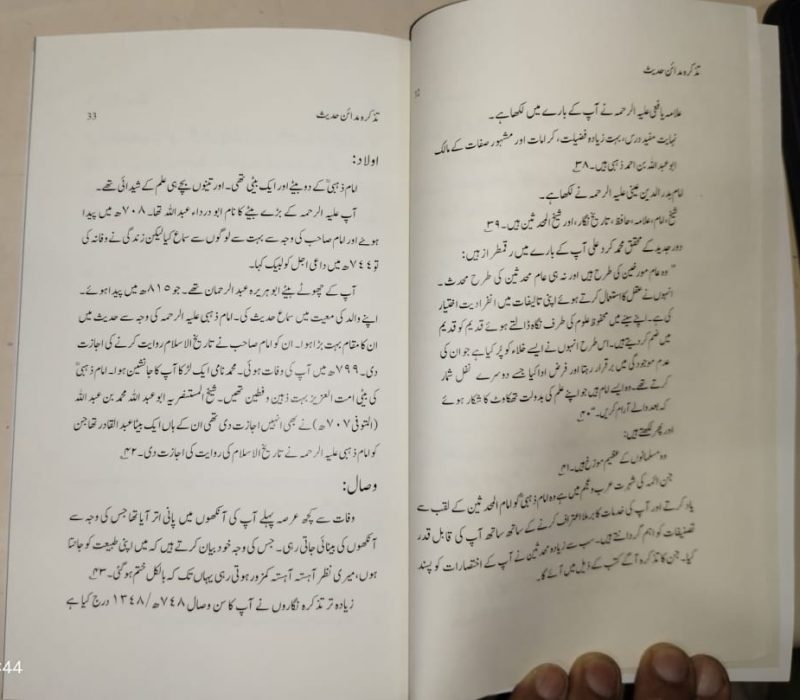 تذکرہ مدائن حدیث
32
علامہ یافعی علیہ الرحمہ نے آپ کے بارے میں لکھا ہے۔
نہایت مفید درس، بہت زیادہ فضیلت، کرامات اور مشہور صفات کے مالک
ابو عبد اللہ بن احمد ذہبی ہیں۔ ۳۸
امام بدر الدین عینی علیہ الرحمہ نے لکھا ہے۔
شیخ، امام، علامہ، حافظ، تاریخ نگار، اور شیخ المحدثین ہیں۔ ۳۹
دور جدید کے محقق محمد کرد علی آپ کے بارے میں رقمطراز ہیں:
"وہ عام مورخین کی طرح ہیں اور نہ ہی عام محدثین کی طرح محدث۔
انہوں نے عقل کا استعمال کرتے ہوئے اپنی تالیفات میں انفرادیت اختیار
کی ہے۔ اپنے سینے میں محفوظ علوم کی طرف نگاہ ڈالتے ہوئے قدیم کو قدیم
میں ضم کر دیتے ہیں۔ اس طرح انہوں نے ایسے خلاء کو پُر کیا ہے جو ان کی
عدم موجودگی میں برقرار رہتا اور فرض ادا کیا جسے دوسرے نفل شمار
کرتے تھے۔ وہ ایسے امام ہیں جو اپنے علم کی بدولت تھکاوٹ کا شکار ہوئے
کہ بعد والے آرام کریں۔" ۴۰
اور پھر لکھتے ہیں:
وہ مسلمانوں کے عظیم مورّخ ہیں۔ ۴۱
جن ائمہ کی شہرت عرب و عجم میں ہے وہ امام ذہبی کو امام المحدثین کے لقب سے
یاد کرتے اور آپ کی خدمات کا برملا اعتراف کرنے کے ساتھ ساتھ آپ کی قابل قدر
تصنیفات کو اہم گردانتے ہیں۔ سب سے زیادہ محدثین نے آپ کے اختصارات کو پسند
کیا۔ جن کا تذکرہ آگے کتب کے ذیل میں آئے گا۔
تذکرہ مدائن حدیث
33
اولاد:
امام ذہبیؒ کے دو بیٹے اور ایک بیٹی تھی۔ اور تینوں بچے ہی علم کے شیدائی تھے۔
آپ علیہ الرحمہ کے بڑے بیٹے کا نام ابو درداء عبد اللہ تھا۔ ۷۰۸ھ میں پیدا
ہوئے اور امام صاحب کی وجہ سے بہت سے لوگوں سے سماع کیا لیکن زندگی نے وفا نہ کی
تو ۷۴۴ھ میں داعی اجل کو لبیک کہا۔
آپ کے چھوٹے بیٹے ابو ہریرہ عبد الرحمان تھے۔ جو ۸۱۵ھ میں پیدا ہوئے۔
اپنے والد کی معیت میں سماع حدیث کی۔ امام ذہبی علیہ الرحمہ کی وجہ سے حدیث میں
ان کا مقام بہت بڑا ہوا۔ ان کو امام صاحب نے تاریخ الاسلام روایت کرنے کی اجازت
دی۔ ۷۹۹ھ میں آپ کی وفات ہوئی۔ محمد نامی ایک لڑکا آپ کا جانشین ہوا۔ امام ذہبیؒ
کی بیٹی امت العزیز بہت ذہین و فطین تھیں۔ شیخ المستنصریہ ابو عبد اللہ محمد بن عبد اللہ
(المتوفی ۷۰۷ھ) نے بھی انہیں اجازت دی تھی ان کے ہاں ایک بیٹا عبد القادر تھا جن
کو امام ذہبی علیہ الرحمہ نے تاریخ الاسلام کی روایت کی اجازت دی۔ ۴۲
وصال:
وفات سے کچھ عرصہ پہلے آپ کی آنکھوں میں پانی اتر آیا تھا جس کی وجہ سے
آنکھوں کی بینائی جاتی رہی۔ جس کی وجہ خود بیان کرتے ہیں کہ میں اپنی طبیعت کو جانتا
ہوں، میری نظر آہستہ آہستہ کمزور ہوتی رہی یہاں تک کہ بالکل ختم ہو گئی۔ ۴۳
زیادہ تر تذکرہ نگاروں نے آپ کا سن وصال ۷۴۸ھ/۱۳۴۸ درج کیا ہے
:44